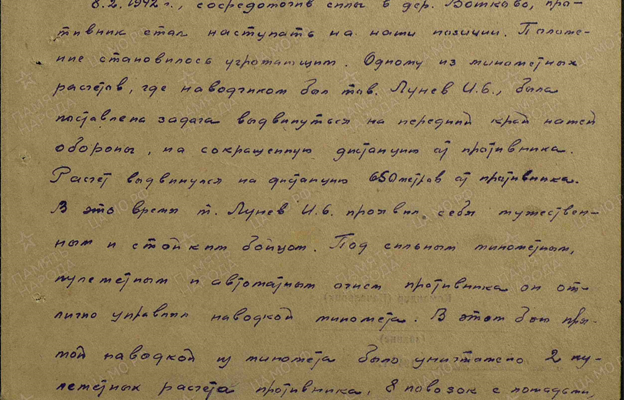 8.2.1942 г., сосредоточив силы в дер. Вотково, про-
тивник стал наступать на наши позиции. Положе-
ние становилось угрожающим. Одному из минометных
расчетов, где наводчиком был тов. Лунев И.Б., была
поставлена задача выдвинуться на передний край нашей
обороны, на сокращенную дистанцию от противника.
Расчет выдвинулся на дистанцию 650 метров от противника.
В это время т. Лунев И.Б. проявил себя мужествен-
ным и стойким бойцом. Под сильным минометным,
пулеметным и автоматным огнем противника он от-
лично управлял наводкой миномета. В этом бою пря-
мой наводкой из миномета было уничтожено 2 пу-
леметных расчета противника, 8 повозок с лошадьми,